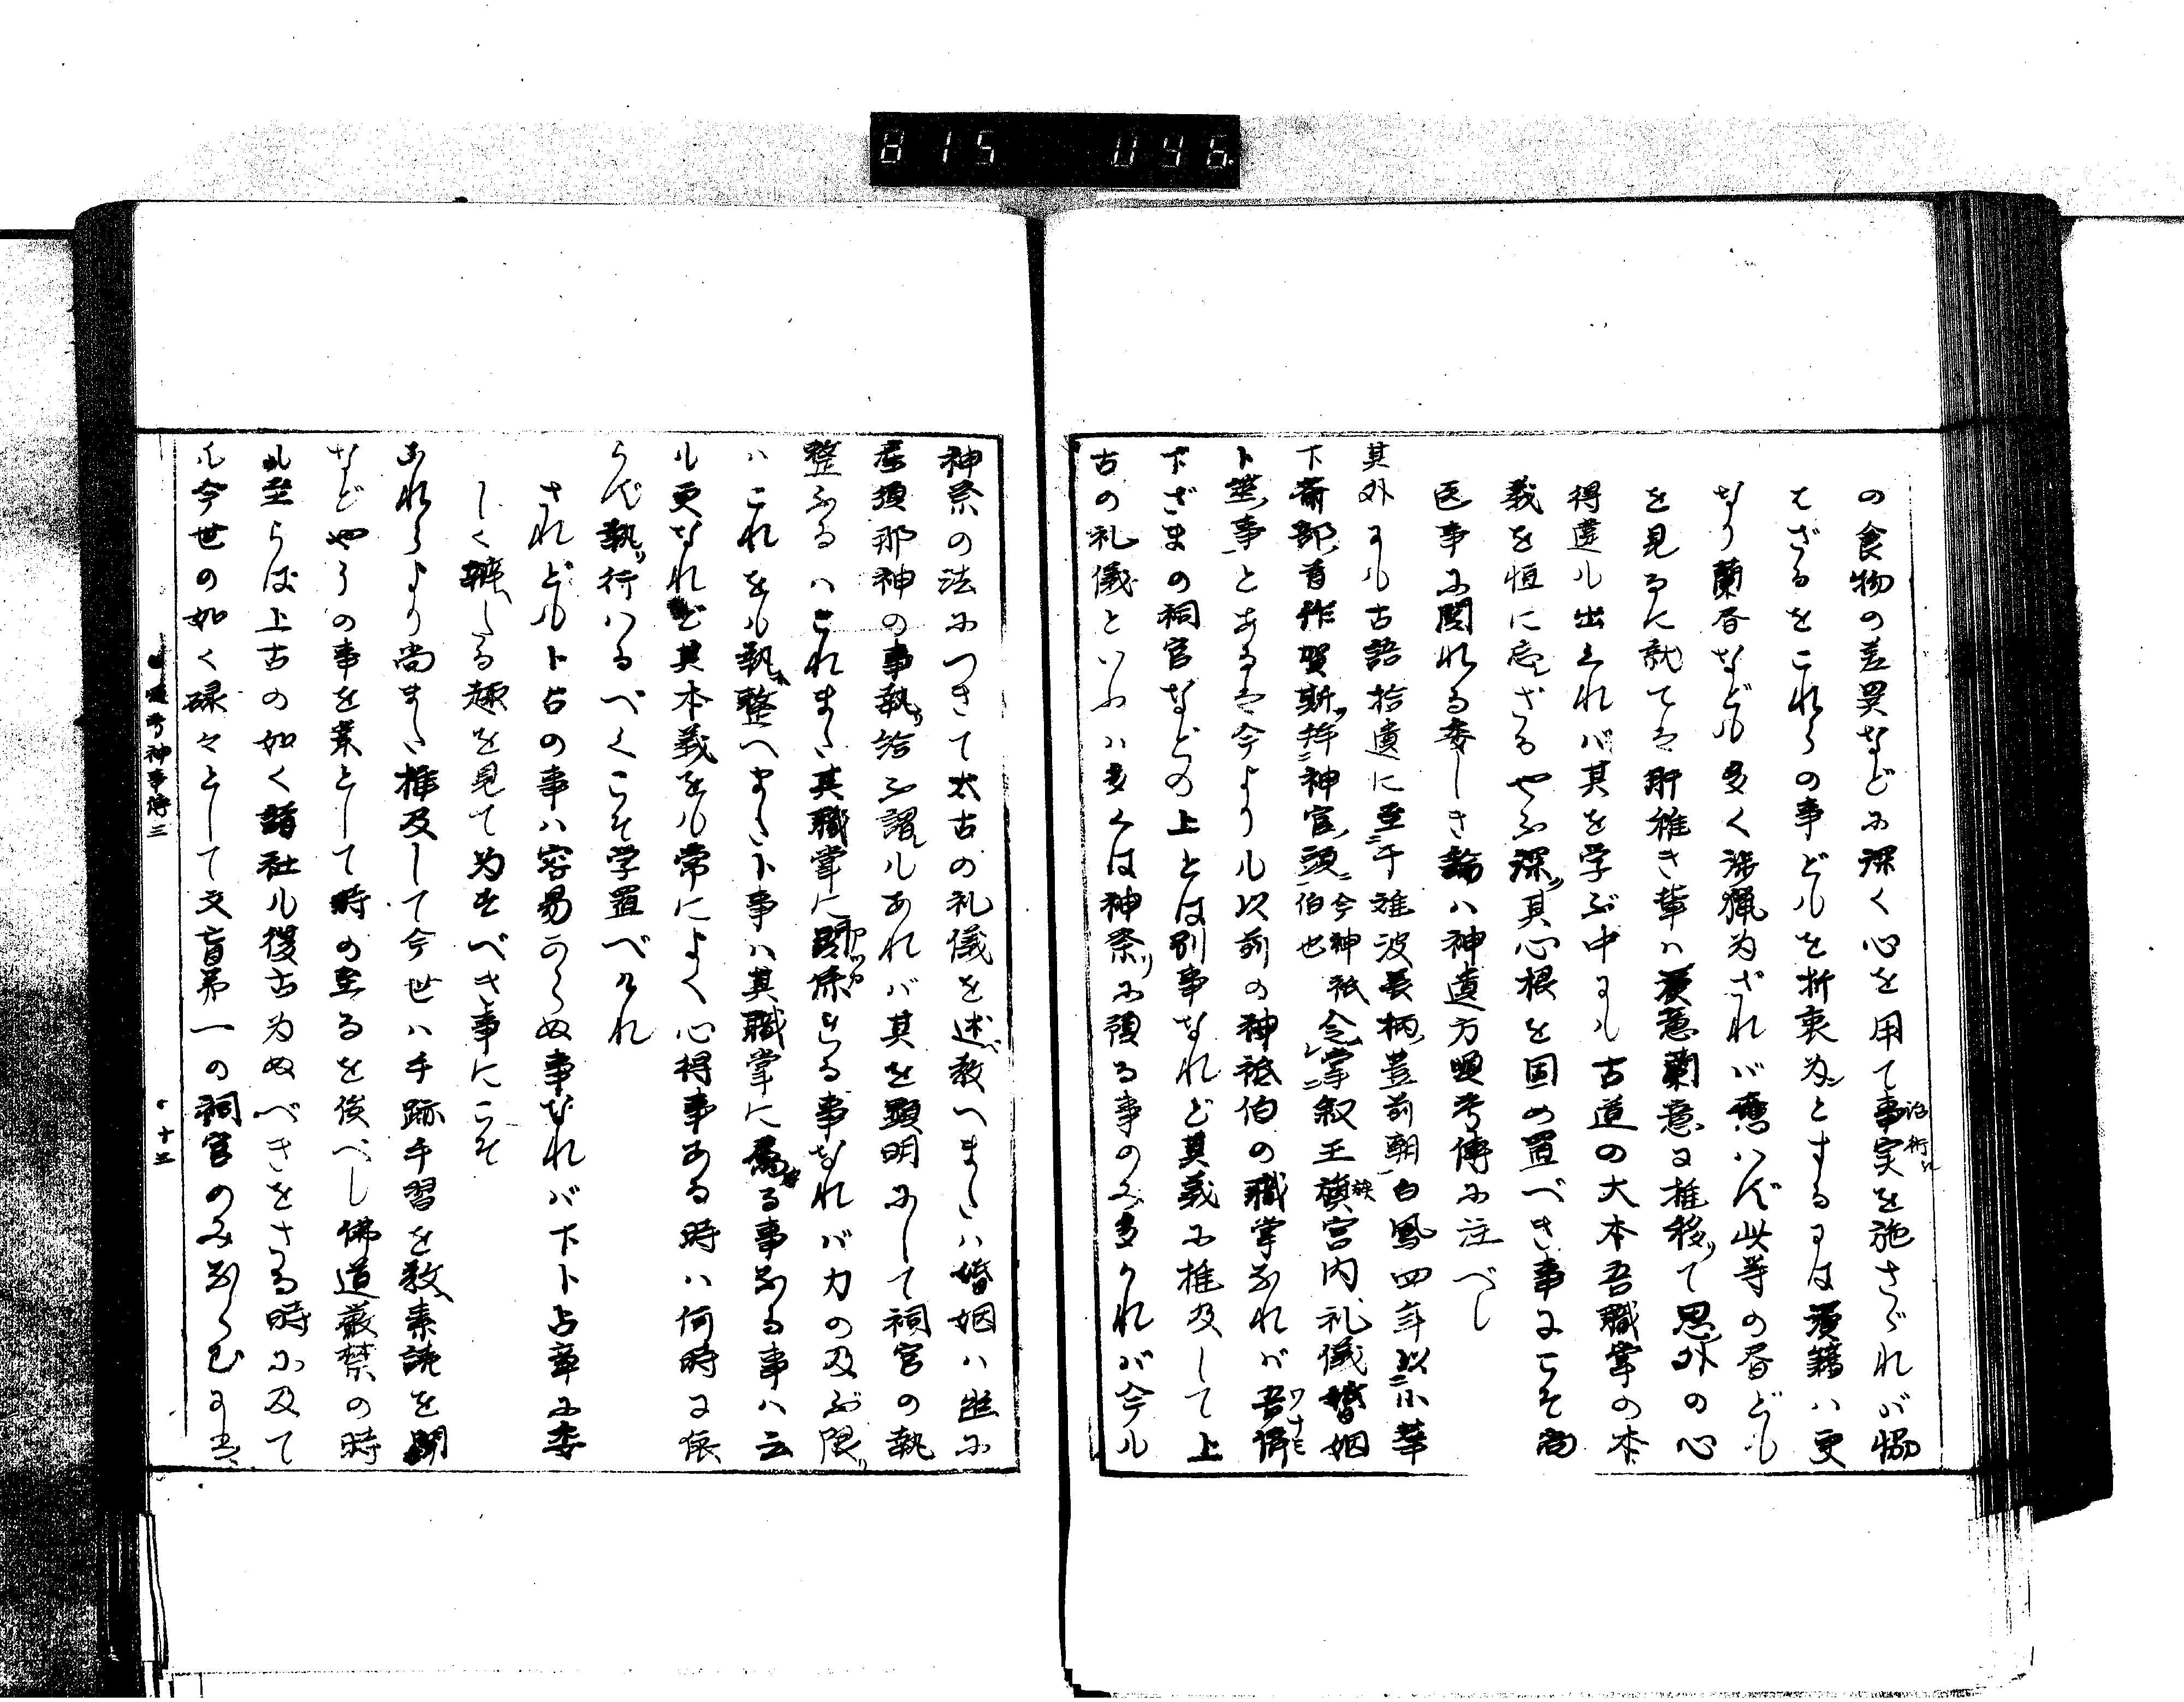 815 046
の食物の差異などに深く心を用て事実を施さゞれバ協
治術に
はざるをこれらの事どもを折衷為とするには漢籍ハ更
なり蘭書なども多く渉猟為ざれバ応ハず此等の書ども
を見るに就てはうら稚き輩ハ漢意蘭意に推移りて思外の心
得違も出くれバ其を学ぶ中にも古道の大本吾職掌の本
義を恒に忘ざるやふ深く其心根を固め置べき事にこそ尚
医事に関れる委しき論ハ神遺方 考傳に注べし
其外にも古語拾遺に至于難波長柄豊前朝白鳳四年以小華
下斎部首作賀斯拝神官頭今神祇伯也令掌叙王族宮内礼儀婚姻
卜筮事とあるは今よりも以前の神祇伯の職掌なれバ吾儕
ワナミ
下ざまの祠官などの上とは別事なれど其義に推及して上
古の礼儀といふハ多くは神祭に預る事のみ多かれバ今も
神祭の法につきて太古の礼儀を述教へまたハ婚姻ハ世に
須那神の事執給ふ謂もあれバ其を顕明にして祠官の執
整ふるハこれまた其職掌に関係る事なれバ力の及ぶ限り
ハこれをも執整へまた卜事ハ其職掌に為る事なる事ハ云
も更なれど其本義をも常によく心得事ある時ハ何時に依
らず執行ハるべくこそ学置べけれ
されども卜占の事ハ容易からぬ事なれバ下卜占章に委
しく辨たる趣を見て為すべき事にこそ
これらより尚また推及して今世ハ手跡手習を教素読を開
などやうの事を業として時の至るを俟べし佛道厳禁の時
も至らば上古の如く諸社も復古為ぬべきをさる時に及て
も今世の如く碌々として文盲第一の祠官のみならむには
考神事傳三
十五